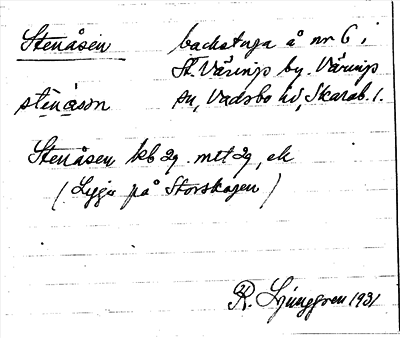 Stenåsen backstuga å nr 6 i
St. Väring by. Väring
stènåsan sn, Vadsbo hd, Skarab. l.
Stenåsen kb 29. mtl 29, ek
(Ligga på Storskogen)
R. Ljunggren 1931